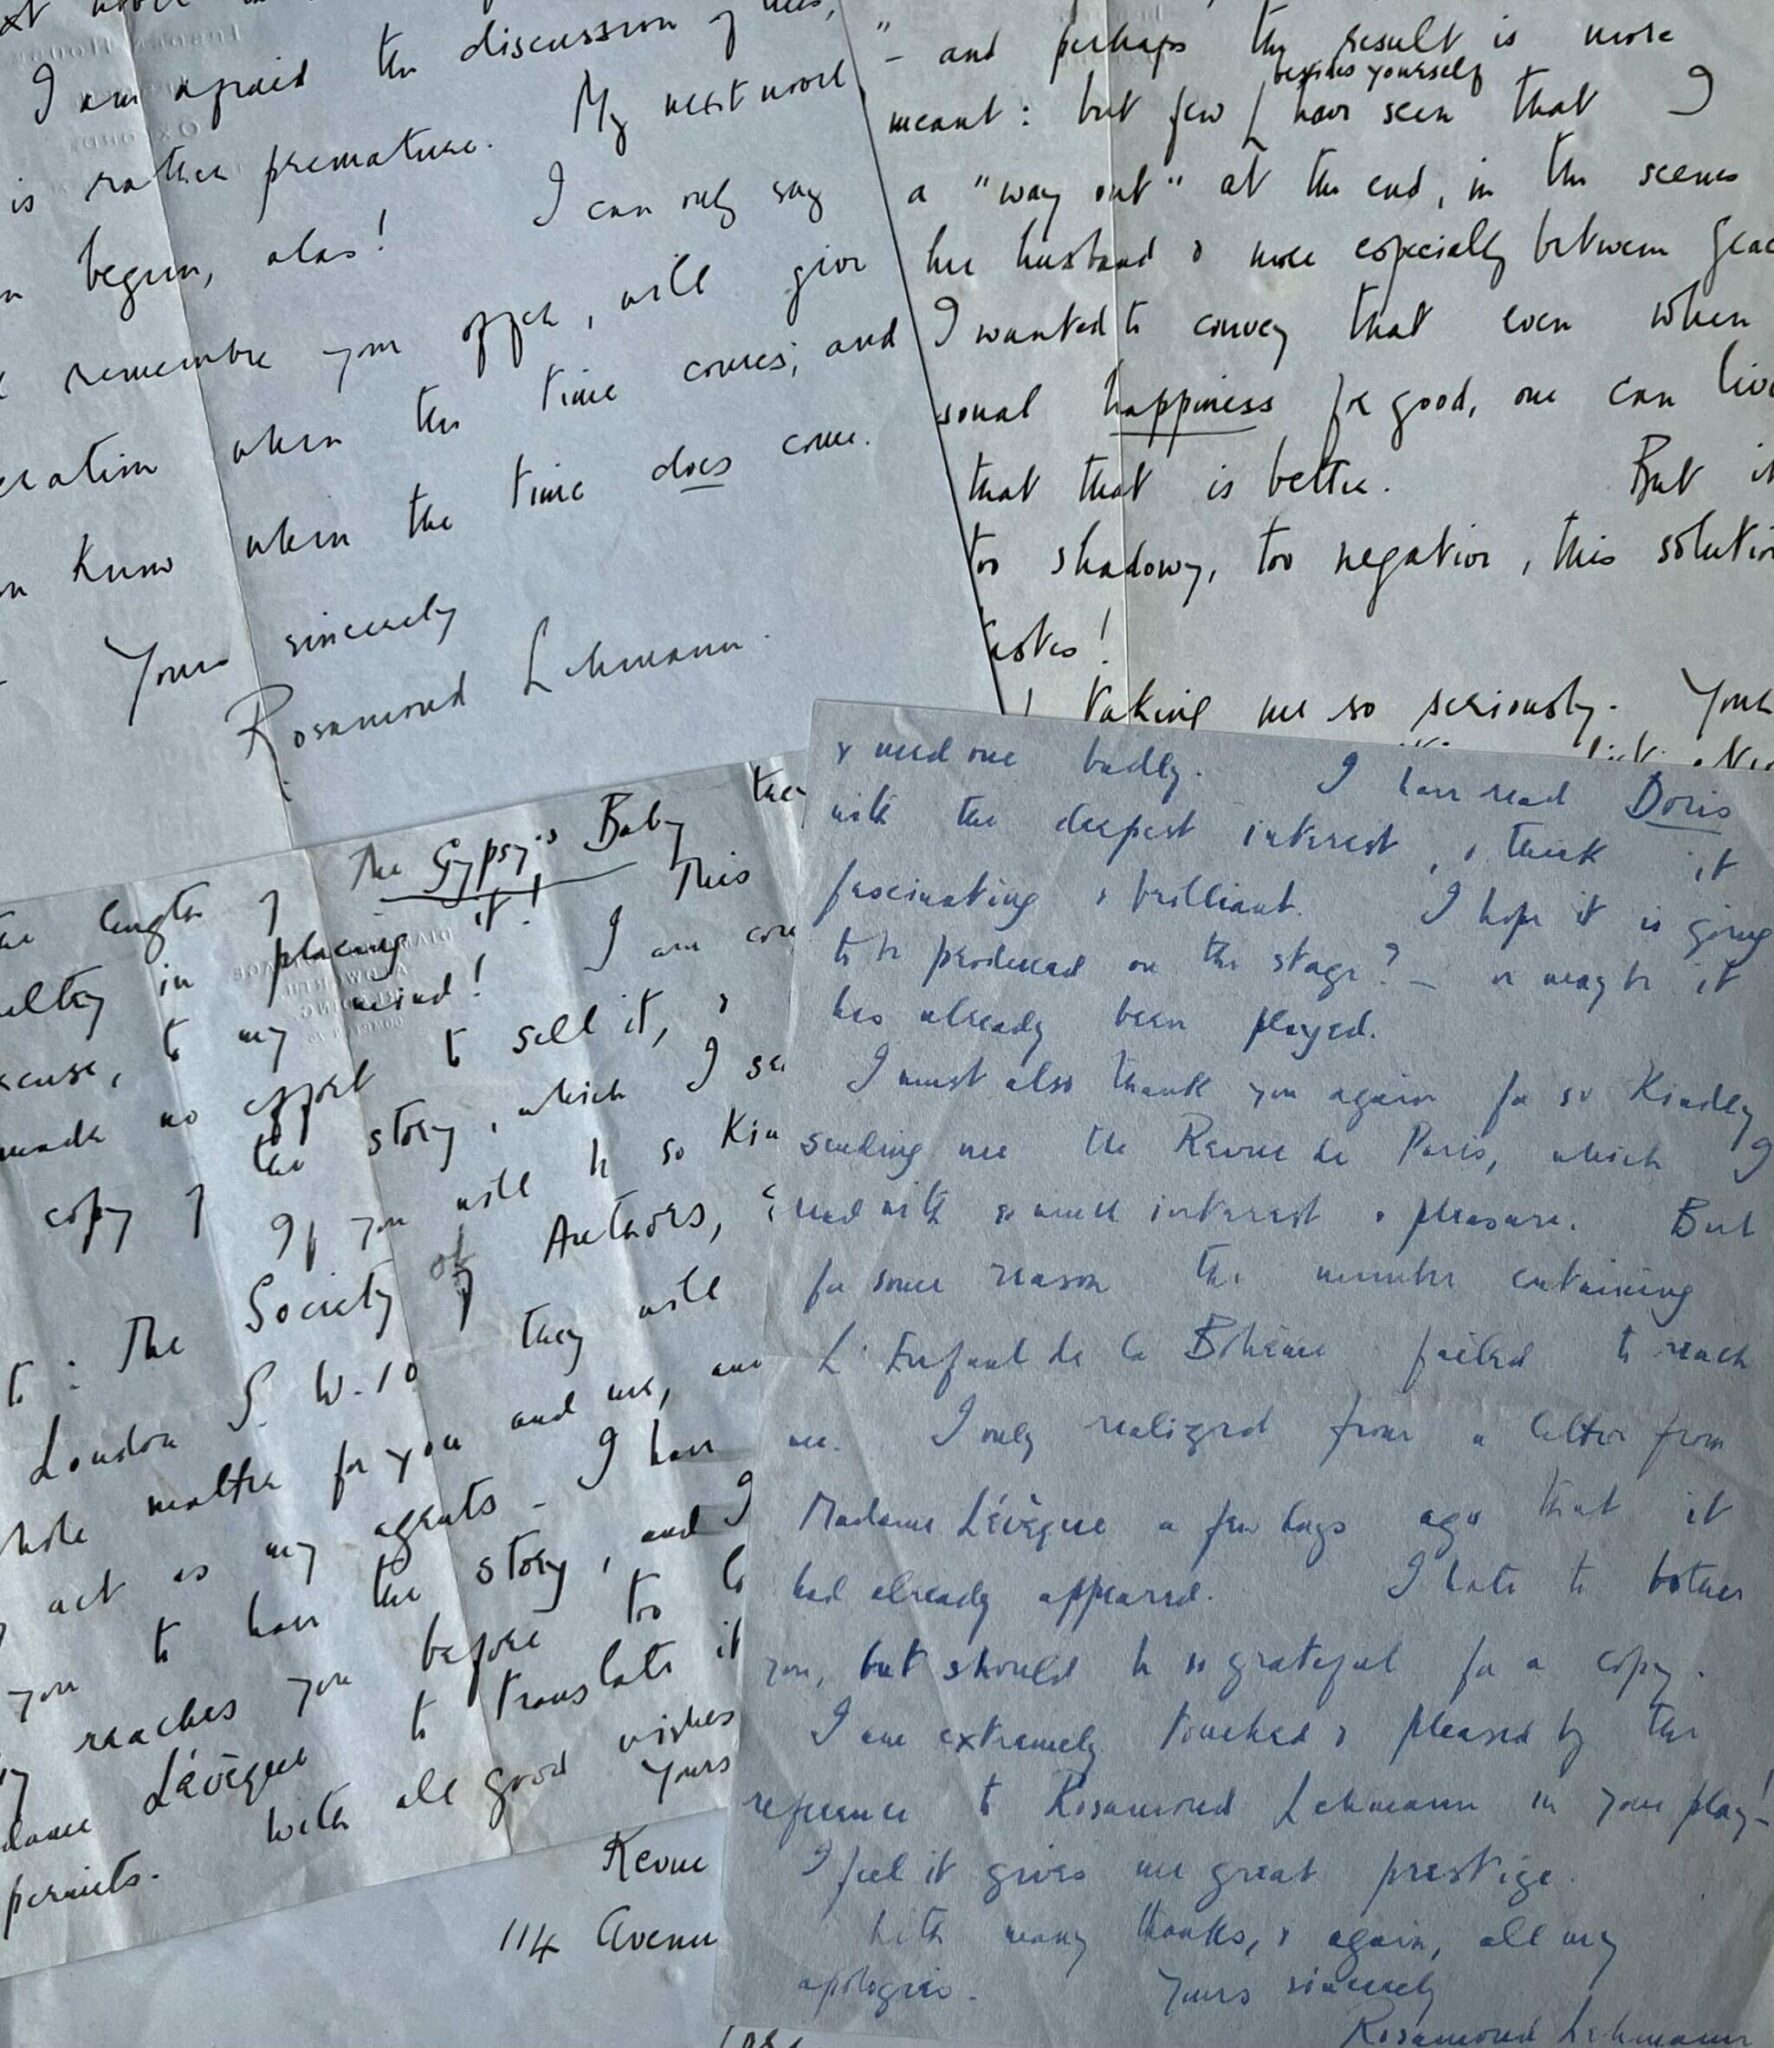 I am afraid the discussion of
is rather premature. My next novel
begun, alas! I can only say
remember your offer, will give
when the time comes; and
know when the time does come.
Yours sincerely
Rosamond Lehmann.
"- and perhaps the result is more
besides yourself
meant: but few have seen that I
a "way out" at the end, in the scenes
her husband & more especially between
I wanted to convey that even when
sonal happiness for good, one can
that that is better. But
too shadowy, too negative, this
taking me so seriously.
length of The Gypsy's Baby
in placing it! This
to my mind! I am
no effort to sell it, &
copy of the story, which I
If you will be so
to: The Society of Authors,
London S.W.10 they will
matter for you and me,
act as my agents - I have
you to have the story, and I
reaches you before too
Lévêque to translate it
permits. With all good wishes
Yours
Revue
114 Avenu
& need one badly. I have read Doris
with the deepest interest, & think it
fascinating & brilliant. I hope it is going
to be produced on the stage? - or maybe it
has already been played.
I must also thank you again for so kindly
sending me the Revue de Paris, which I
read with so much interest & pleasure. But
for some reason the number containing
L'Enfant de la Bohème failed to reach
me. I only realized from a letter from
Madame Lévêque a few days ago that it
had already appeared. I hate to bother
you, but should be so grateful for a copy.
I am extremely touched & pleased by the
reference to Rosamond Lehmann in your play!-
I feel it gives me great prestige.
With many thanks, & again, all my
apologies. Yours sincerely
Rosamond Lehmann